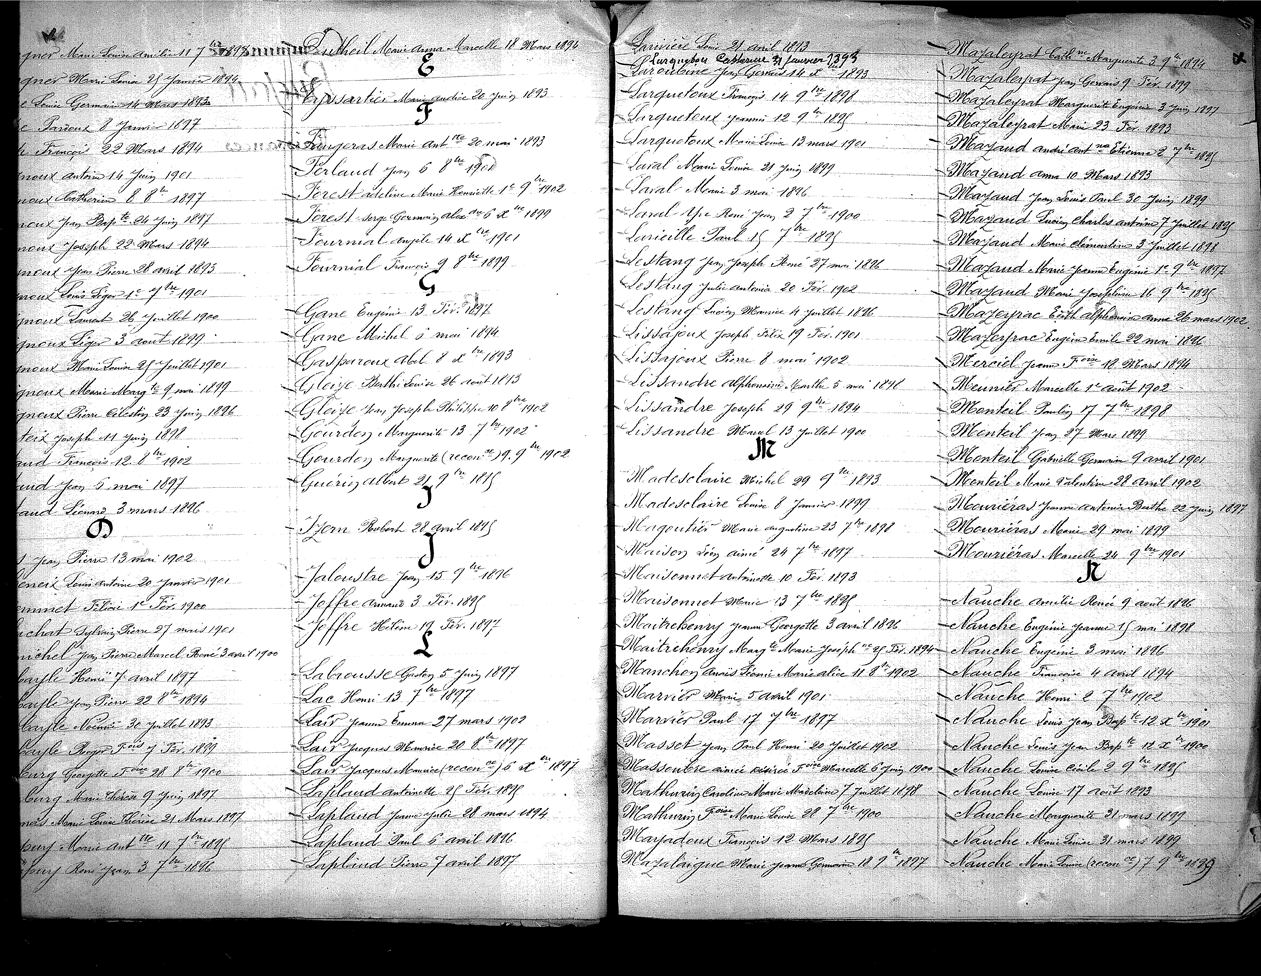 gner Marie Louise Amélie 11 7bre 1898
gner Marie Louise 25 Janvier 1894
Louise Germaine 14 Mars 1893
Parioux 8 Janvier 1897
François 22 Mars 1894
noux Antoine 14 Juin 1901
noux Catherine 8 8bre 1897
noux Jean Bapte 24 Juin 1897
noux Joseph 22 Mars 1894
noux Jean Pierre 28 avril 1893
noux Louis Léger 1er 7bre 1901
gnoux Laurent 26 Juillet 1900
gnoux Léger 3 août 1899
gnoux Marie Louise 25 Juillet 1901
gnoux Marie Margte 9 mai 1899
gnoux Pierre Célestin 23 Juin 1896
teix Joseph 11 Juin 1898
aud François 12 8bre 1902
aud Jean 6 mai 1897
aud Léonard 3 mars 1896
D
Jean Pierre 13 mai 1902
Louis Antoine 20 Janvier 1901
ommet Félicie 1er Fév. 1900
uchat Sylvain Pierre 27 mars 1901
michel Jean Pierre Marcel René 3 avril 1900
bayle Henri 7 avril 1897
bayle Jean Pierre 22 8bre 1894
bayle Noémie 30 Juillet 1893
bayle Roger Fois 7 Fév. 1899
burg Georgette Foise 28 8bre 1900
burg Marie Thérèse 9 Juin 1897
Marie Louise Thérèse 21 Mars 1897
Marie Antte 11 7bre 1895
René Jean 3 7bre 1896
Dutheil Marie Anna Marcelle 18 Mars 1894
E
Marie Andrée 20 Juin 1893
F
Faugeras Marie Antntte 20 mai 1893
Ferland Jean 6 8bre 1900
Forest Adeline Marie Henriette 1er 9bre 1902
Forest Serge Germain 6 Xbre 1899
Fournial Angèle 14 Xbre 1901
Fournial François 9 8bre 1899
G
Gane Eugénie 13 Fév. 1897
Gane Michel 6 mai 1894
Gasparoux Abel 8 Xbre 1893
Gloize Berthe Louise 26 août 1893
Gloize Jean Joseph Philippe 10 8bre 1902
Gourdon Marguerite 13 7bre 1902
Gourdon Marguerite (reconce) 9. 9bre 1902
Guérin Albert 21 9bre 1895
I
Izorn Robert 28 avril 1895
J
Jaloustre Jean 15 9bre 1896
Joffre Armand 3 Fév. 1895
Joffre Hélène 19 Fév. 1897
L
Labrousse Gaston 5 Juin 1897
Lac Henri 13 7bre 1897
Lair Jeanne Emma 27 mars 1902
Lair Jacques Maurice 20 8bre 1897
Lair Jacques Maurice (reconce) 6 Xbre 1897
Lapland Antoinette 25 Fév. 1895
Lapland Jeanne Julie 28 mars 1894
Lapland Paul 6 avril 1896
Lapland Pierre 7 avril 1897
Larivière Louis 21 avril 1893
Larquetou Catherine 31 Janvier 1893
Jean Georges 14 Xbre 1893
Larquetoux François 14 9bre 1898
Larquetoux Jeanne 12 9bre 1895
Larquetoux Marie Louise 13 mars 1901
Laval Marie Louise 21 Juin 1899
Laval Marie 3 mai 1896
René Jean 2 7bre 1900
Lavieille Paul 15 7bre 1895
Lestang Jean Joseph René 27 mai 1896
Lestang Julie Antonia 20 Fév. 1902
Lestang Lucien Maurice 4 Juillet 1896
Lissajoux Joseph Félix 19 Fév. 1901
Lissajoux Pierre 8 mai 1902
Lissandre Alphonsine Marthe 5 mai 1898
Lissandre Joseph 29 9bre 1894
Lissandre Marcel 13 Juillet 1900
M
Madesclaire Michel 29 9bre 1893
Madesclaire Louise 8 Janvier 1899
Magoutier Marie Augustine 23 7bre 1898
Maison Léon Aimé 24 7bre 1897
Maisonnet Antoinette 10 Fév. 1893
Maisonnet Marie 13 7bre 1895
Maitrehenry Jeanne Georgette 3 avril 1896
Maitrehenry Margte Marie Joseph 25 Fév. 1894
Manchon Anaïs Léonie Marie Alice 11 8bre 1902
Marvier Marie 5 avril 1901
Marvier Paul 17 7bre 1897
Masset Jean Paul Henri 20 Juillet 1902
Massoubre Aimée Désirée Foise Marcelle 6 Juin 1900
Mathurin Caroline Marie Madeleine 7 Juillet 1898
Mathurin Foise Marie Louise 28 7bre 1900
Mazadoux François 12 Mars 1895
Mazalaigue Marie Jeanne Germaine 18 9bre 1897
Mazaleyrat Cathne Marguerite 3 9bre 1894
Mazaleyrat Jean Gervais 9 Fév. 1899
Mazaleyrat Marguerite Eugénie 3 Juin 1897
Mazaleyrat Marie 23 Fév. 1893
Mazaud André Antne Etienne 2 7bre 1895
Mazaud Anna 10 Mars 1893
Mazaud Jean Louis Paul 30 Juin 1899
Mazaud Lucien Charles Antoine 7 Juillet 1895
Mazaud Marie Clémentine 3 Juillet 1898
Mazaud Marie Jeanne Eugénie 1er 9bre 1897
Mazaud Marie Joséphine 16 9bre 1895
Mazeyrac Edith Alphonsine Anne 26 mars 1902
Mazeyrac Eugène Emile 22 mai 1896
Merciel Jeanne Foise 18 Mars 1894
Meunier Marcelle 1er août 1902
Monteil Paulin 17 7bre 1898
Monteil Jean 27 Mars 1899
Monteil Gabrielle Germaine 9 avril 1901
Monteil Marie Valentine 28 avril 1902
Mouriéras Jeanne Antonia Berthe 22 Juin 1897
Mouriéras Marie 29 mai 1899
Mouriéras Marcelle 24 9bre 1901
N
Nauche Amélie Renée 9 août 1896
Nauche Eugénie Jeanne 15 mai 1898
Nauche Eugénie 3 mai 1896
Nauche Françoise 4 avril 1894
Nauche Henri 2 7bre 1902
Nauche Louis Jean Bapte 12 Xbre 1901
Nauche Louis Jean Bapte 12 Xbre 1900
Nauche Louise Cécile 2 9bre 1895
Nauche Louise 17 août 1893
Nauche Marguerite 31 mars 1899
Nauche Marie Louise 31 mars 1899
Nauche Marie Louise (reconce) 7 9bre 1899